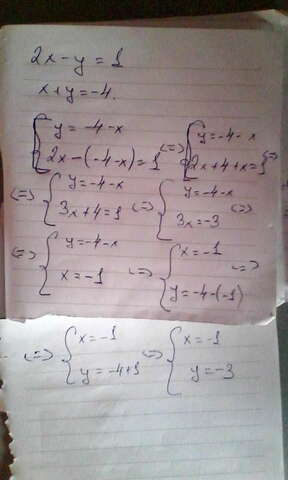 2x-y=1
x+y=-4.
{ y=-4-x
2x-(-4-x)=1 (=) { y=-4-x
2x+4+x=1 (=)
(=) { y=-4-x
3x+4=1 (=) { y=-4-x
3x=-3 (=)
(=) { y=-4-x
x=-1 (=) { x=-1
y=-4-(-1) (=)
(=) { x=-1
y=-4+1 (=) { x=-1
y=-3